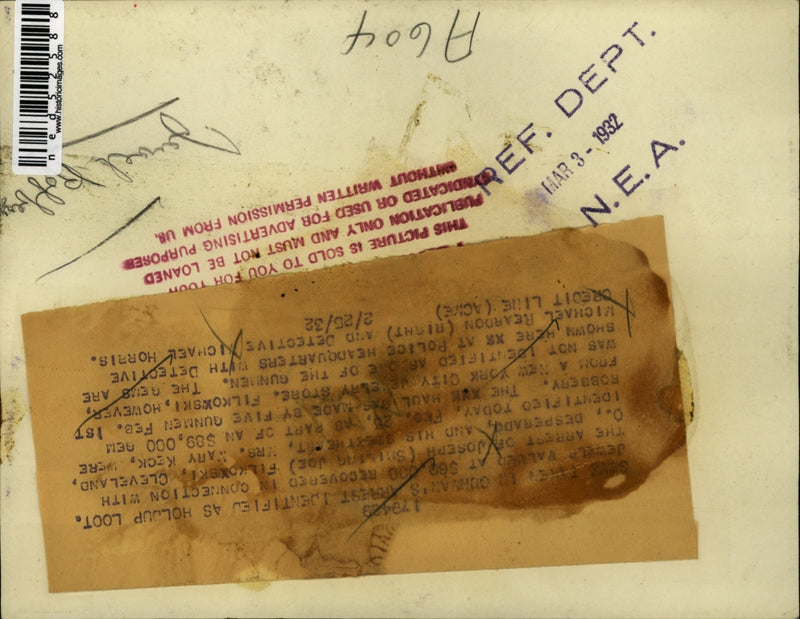 ned52588
www.historicimages.com
A604
REF. DEPT.
MAR 3 - 1932
N. E. A.
Jewel Robbery
THIS PICTURE IS SOLD TO YOU FOR YOUR
PUBLICATION ONLY AND MUST NOT BE LOANED
SYNDICATED OR USED FOR ADVERTISING PURPOSES
WITHOUT WRITTEN PERMISSION FROM US.
179489
GEMS TAKEN IN GUNMAN'S ARREST IDENTIFIED AS HOLDUP LOOT.
JEWELS VALUED AT $69,000 RECOVERED IN CONNECTION WITH
THE ARREST OF JOSEPH (SMILING JOE) FILKOWSKI, CLEVELAND,
O., DESPERADO, AND HIS SWEETHEART, MRS. MARY KECK, WERE
IDENTIFIED TODAY, FEB. 25, AS PART OF AN $89,000 GEM
ROBBERY. THE HAUL WAS MADE BY FIVE GUNMEN FEB. 1ST
FROM A NEW YORK CITY JEWELRY STORE. FILKOWSKI, HOWEVER,
WAS NOT IDENTIFIED AS ONE OF THE GUNMEN. THE GEMS ARE
SHOWN HERE AT POLICE HEADQUARTERS WITH DETECTIVE
MICHAEL REARDON (RIGHT) AND DETECTIVE MICHAEL HORRIS.
CREDIT LINE (ACME) 2/25/32